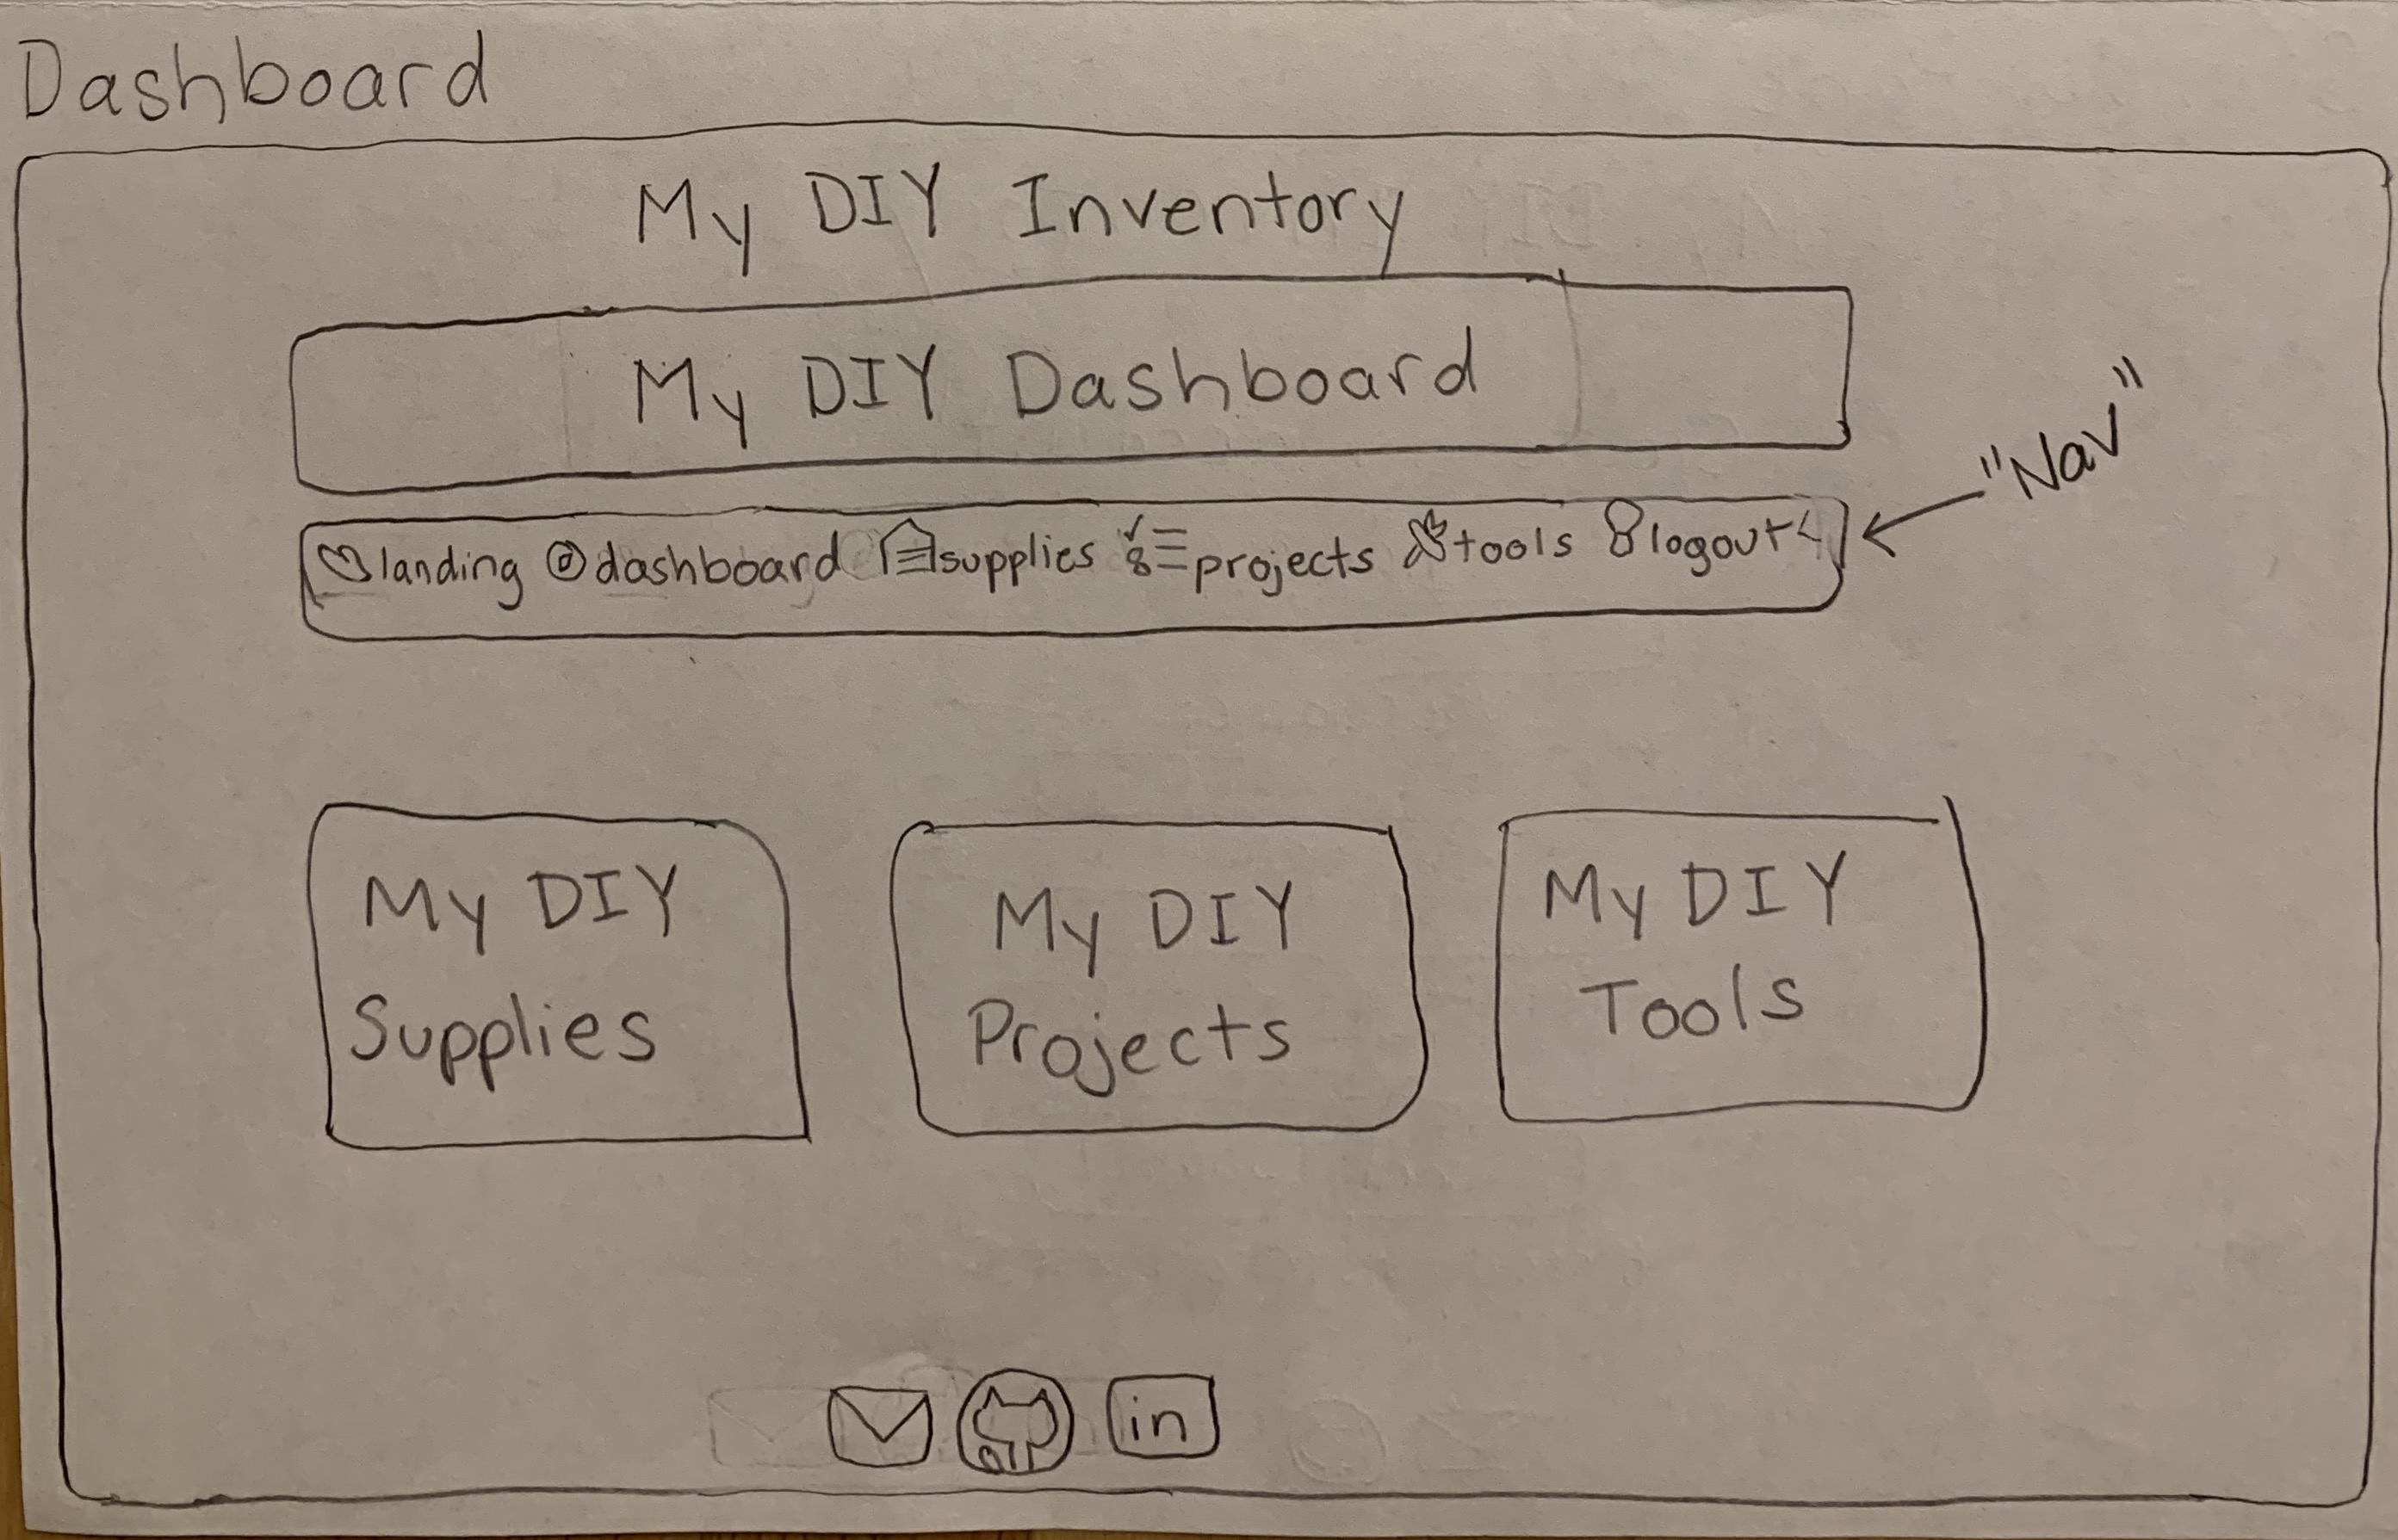 Dashboard
My DIY Inventory
My DIY Dashboard
"Nav"
landing dashboard supplies projects tools logout
My DIY
Supplies
My DIY
Projects
My DIY
Tools
in